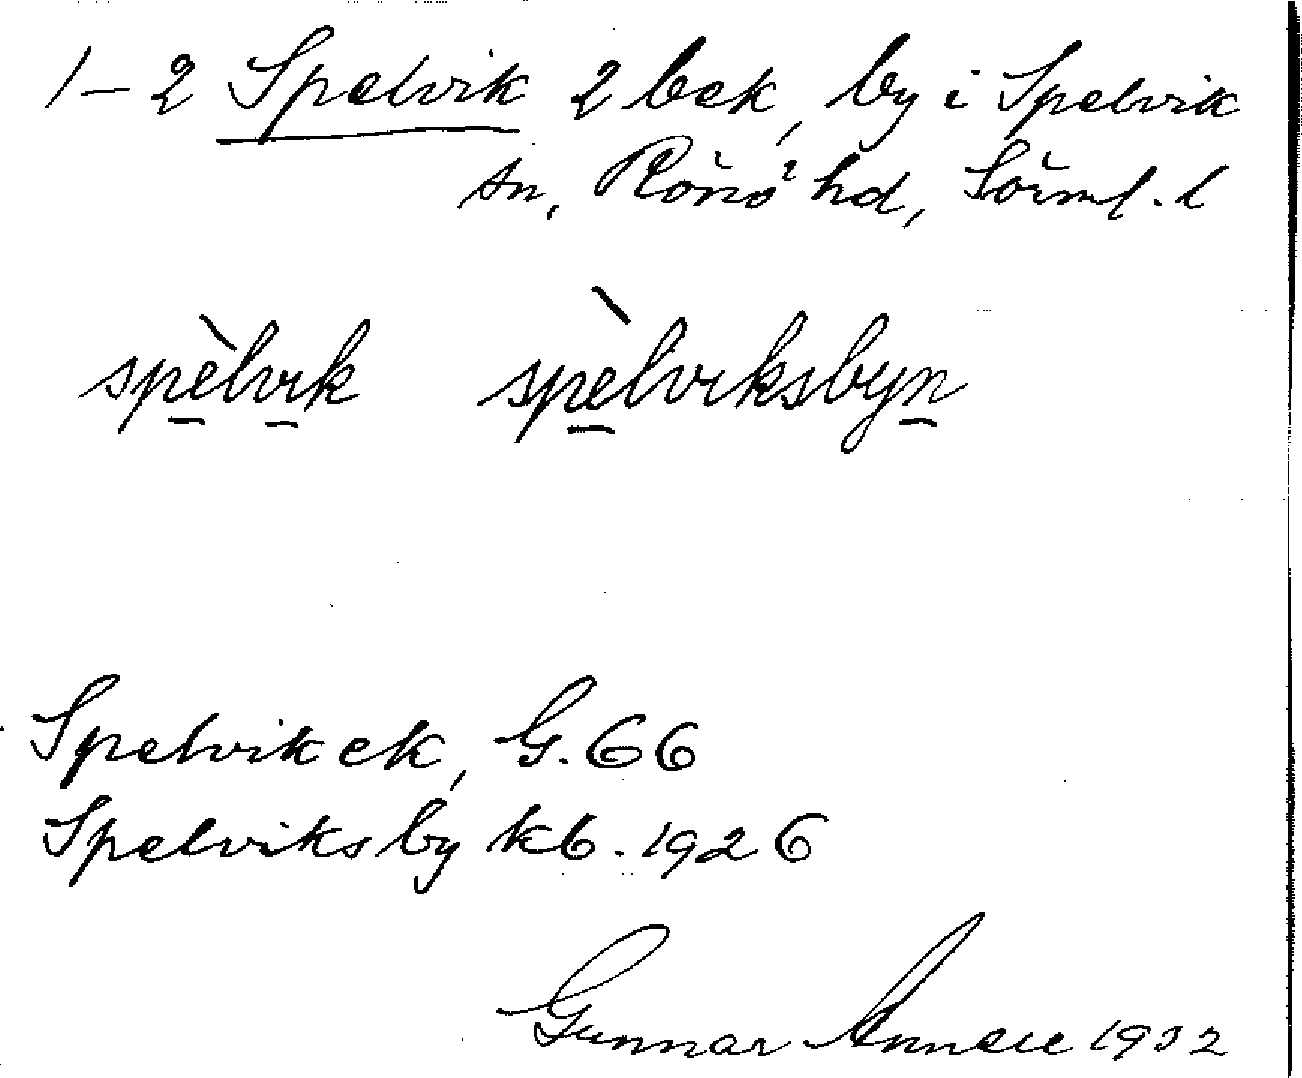 1–2 Spelvik 2 bek, by i Spelvik
sn, Rönö hd, Sörml. l
spèlvik spèlviksbyn
Spelvik ek, G. 66
Spelviksby kb. 1926
Gunnar 1932